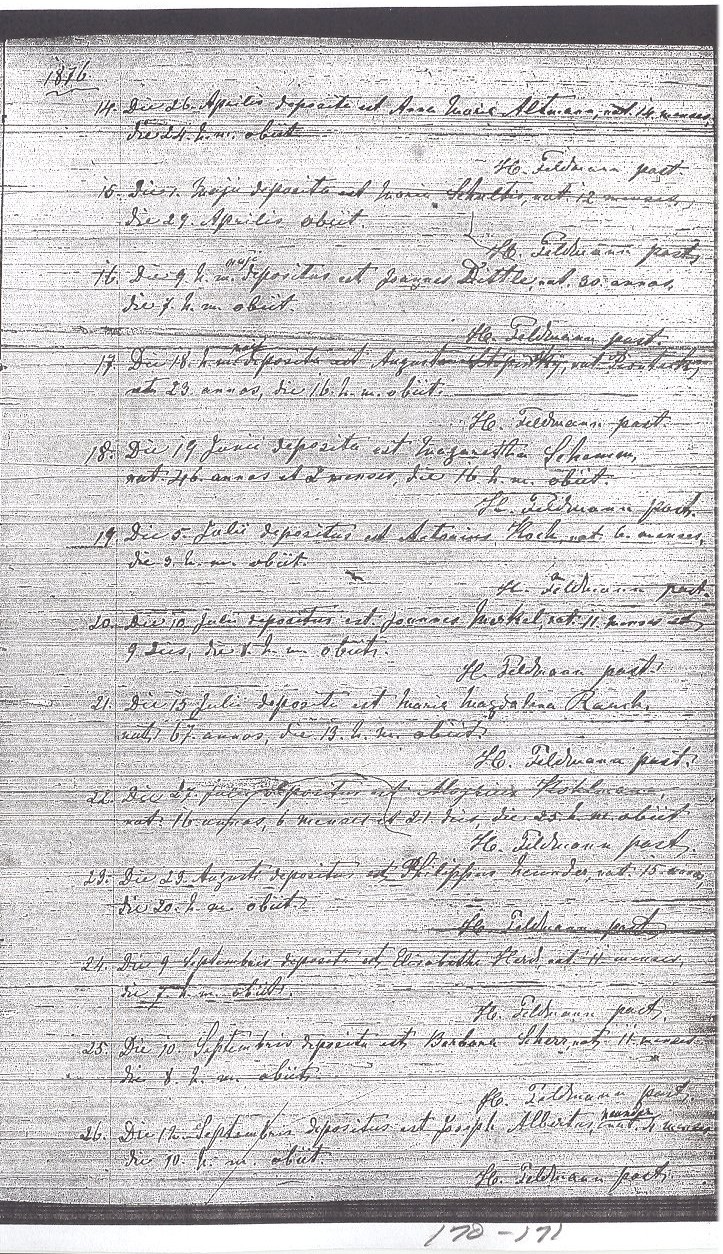 1876
14. Die 26. Aprilis deposita est Anna Maria Altmann, nat. 14 menses,
die 24. h. m. obiit
H. Feldmann past
15. Die 1. Maji deposita est Maria Schultis, nat. 12 menses,
die 29. Aprilis obiit.
H. Feldmann past.
16. Die 9. h. m. depositus est Joannes Dittle, nat. 30. annos,
die 7. h. m. obiit.
H. Feldmann past.
17. Die 18. h. m. deposita est Augusta nat.
et 23 annos, die 16. h. m. obiit.
H. Feldmann past.
18. Die 19 Junii deposita est Margaretha
nat. 46. annos et 2 menses, die 16. h. m. obiit.
H. Feldmann past.
19. Die 5. Julii depositus est Antonius Koch, nat. 6. menses,
die 3. h. m. obiit.
H. Feldmann past.
20. Die 10. Julii depositus est Joannes Merkel, nat. 11 menses et
9 dies, die 8. h. m. obiit.
H. Feldmann past.
21. Die 15 Julii deposita est Maria Magdalena Rauch,
nat. 67. annos, die 13. h. m. obiit.
H. Feldmann past.
22. Die 27 Julii depositus est Aloysius Kohlmann,
nat. 16 annos, 6 menses et 21 dies, die 25 h. m. obiit
H. Feldmann past.
23. Die 23. Augusti depositus est Philippus Neunder, nat. 15 annos,
die 20. h. m. obiit.
H. Feldmann past.
24. Die 9 Septembris deposita est Elisabetha nat. 11 menses,
die 7 h. m. obiit.
H. Feldmann past.
25. Die 10. Septembris deposita est Barbara Scherr, nat. 11. menses
die 8. h. m. obiit.
H. Feldmann past.
neunder
26. Die 12. Septembris depositus est Joseph Albertus, nat. 4 menses
die 10. h. m. obiit.
H. Feldmann past.
170-171